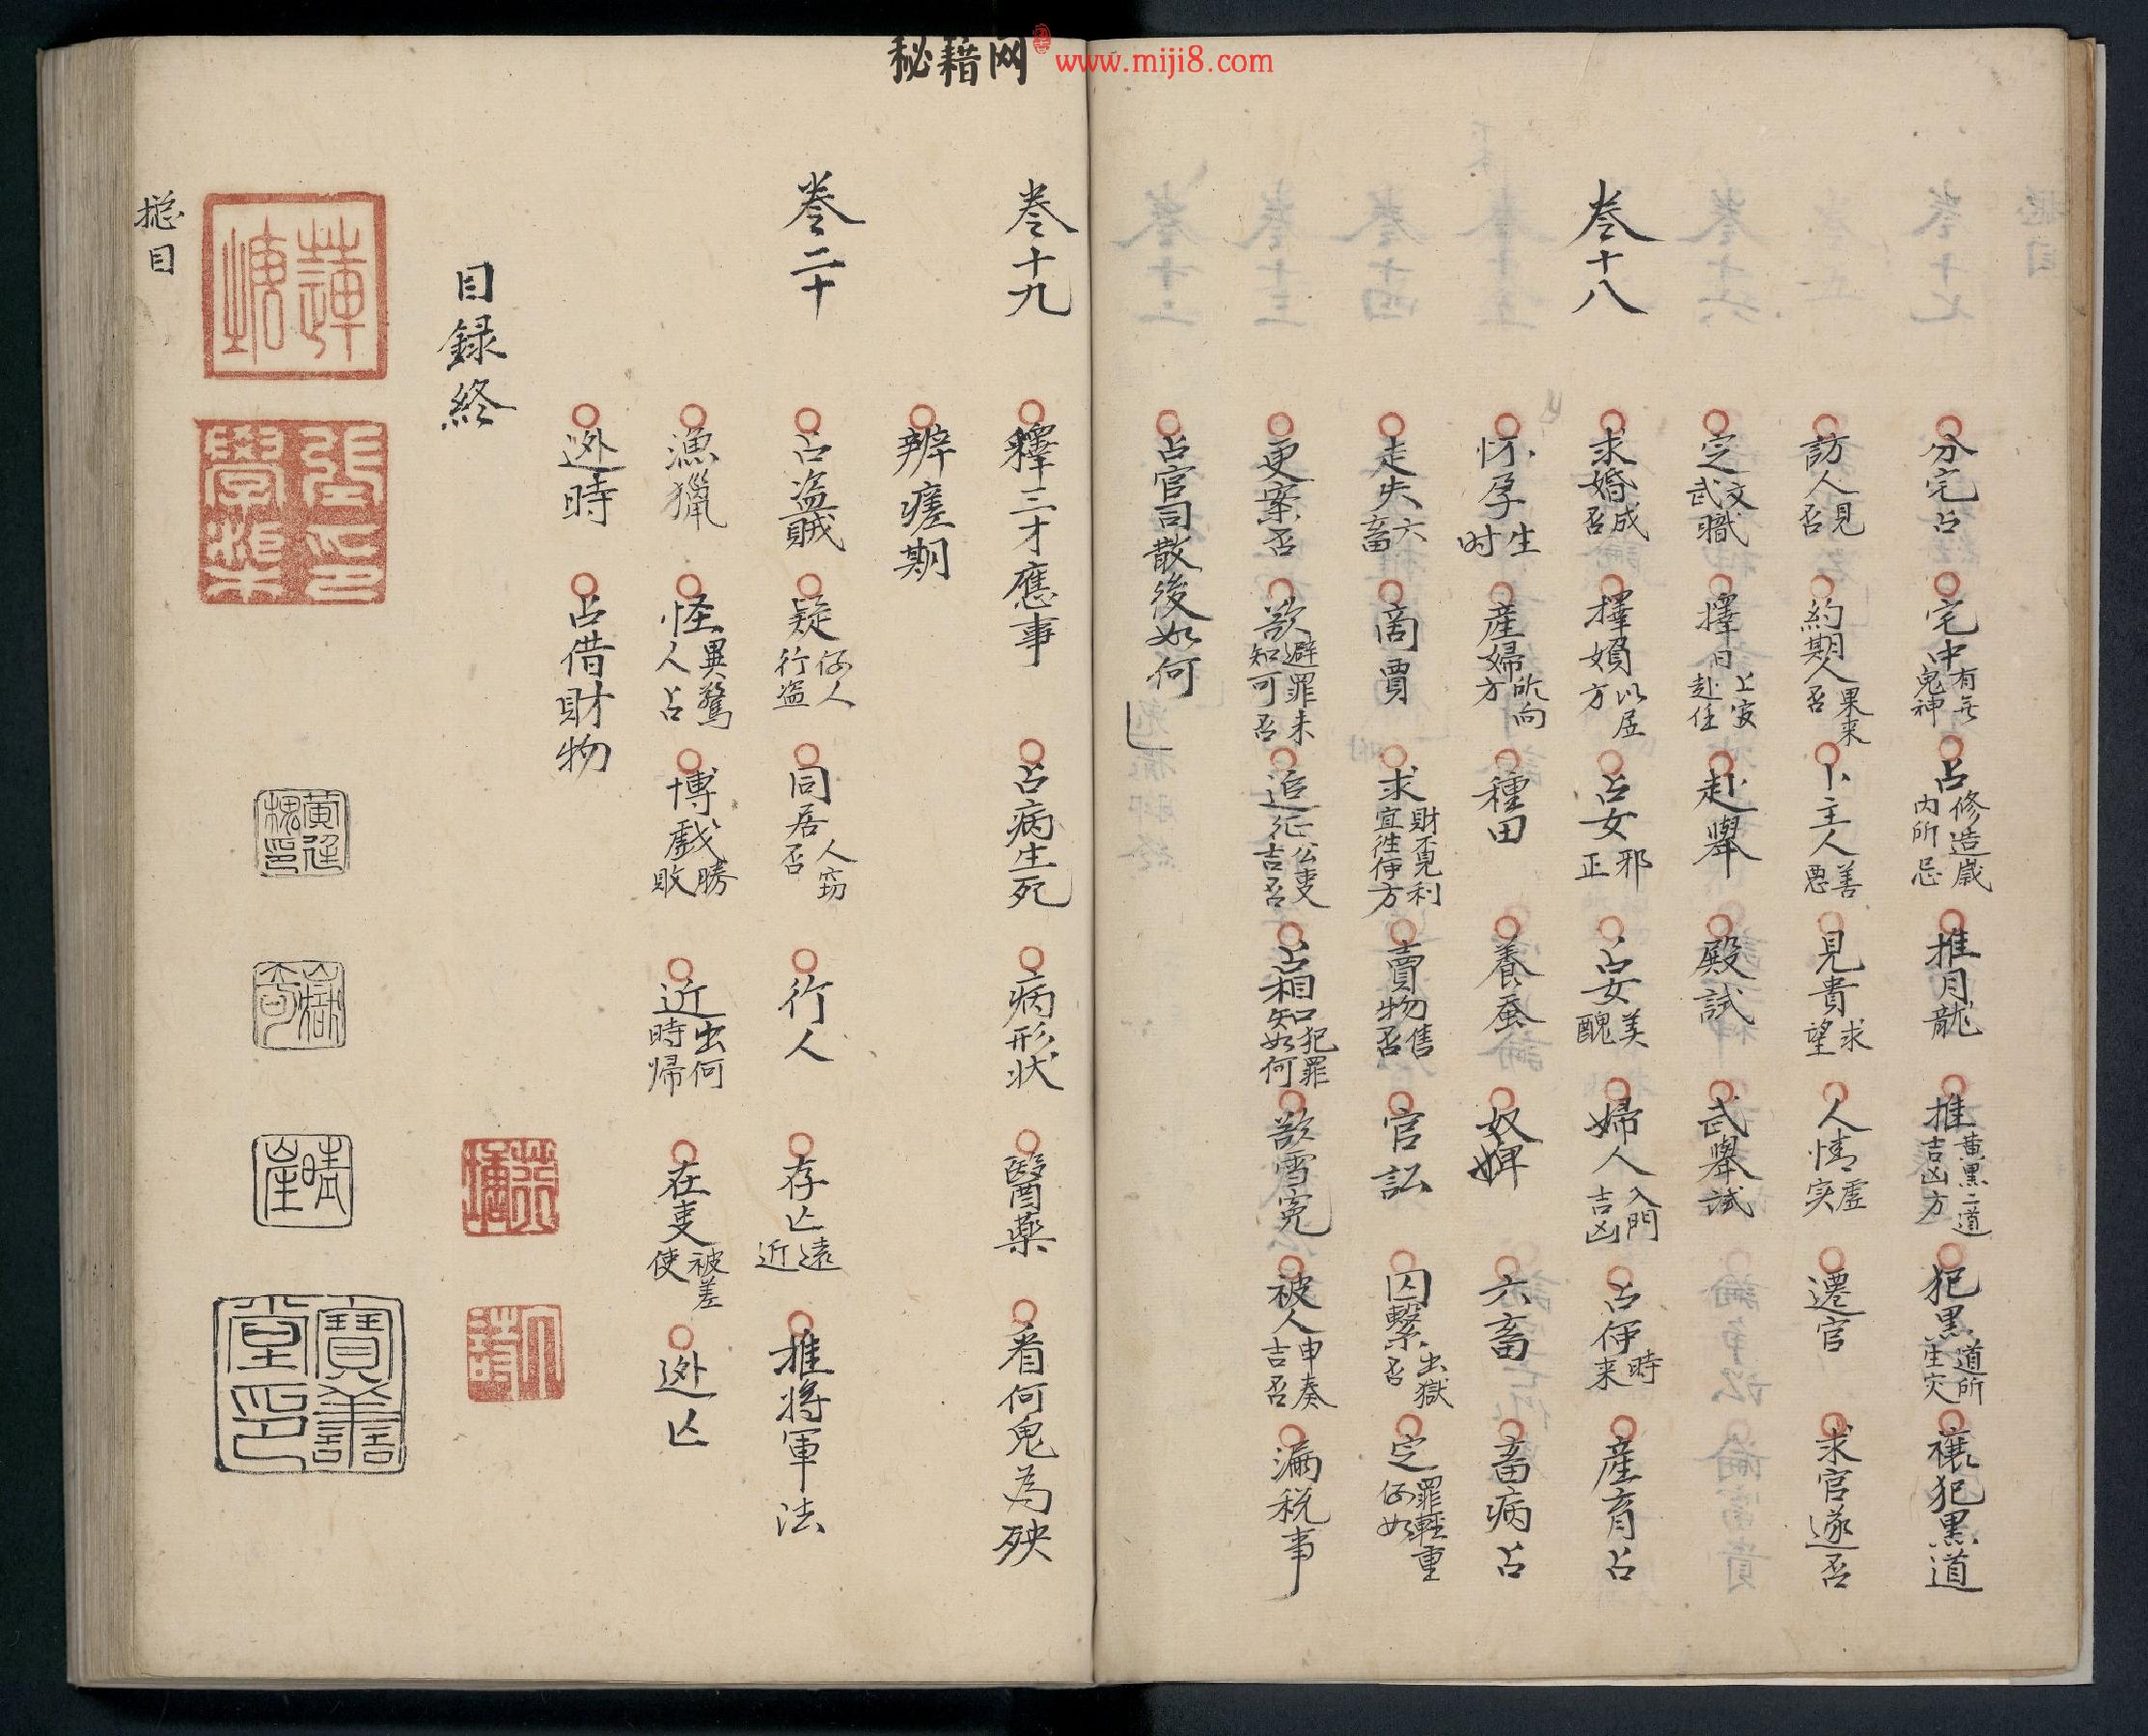 秘籍网 www.miji8.com
分宅占 宅中有无鬼神 占修造歲内所忌 推月龍 推黄黒二道吉凶方 犯黒道所生灾 禳犯黒道
訪人見否 約期人果来否 卜主人善悪 見貴求望 人情虚实 遷官 求官遂否
定文武職 擇日上官赴任 赴舉 殿試 武舉試
卷十八
求婚成否 擇婚以居方 占女邪正 占妾美醜 婦人入門吉凶 占伊時来 産育占
怀孕生时 産婦所向方 種田 養蚕 奴婢 六畜 畜病占
走失六畜 商賈 求財不見利宜徃伊方 賣物售否 官訟 囚繋出獄否 定罪輕重何如
更案否 欲避罪未知可否 追征公事吉否 占相知犯罪如何 欲雪寃 被人申奏吉否 漏税事
占官司散後如何
卷十九
釋三才應事 占病生死 病形状 醫藥 看何鬼為殃
辨瘥期
卷二十
占盗賊 疑何人行盗 同居人窃否 行人 存亡遠近 推将軍法
漁獵 怪異驚人占 博戯勝敗 近出何時帰 在吏被差使 逃亡
逃時 占借財物
目録終
總目
晴崖
寶善堂印